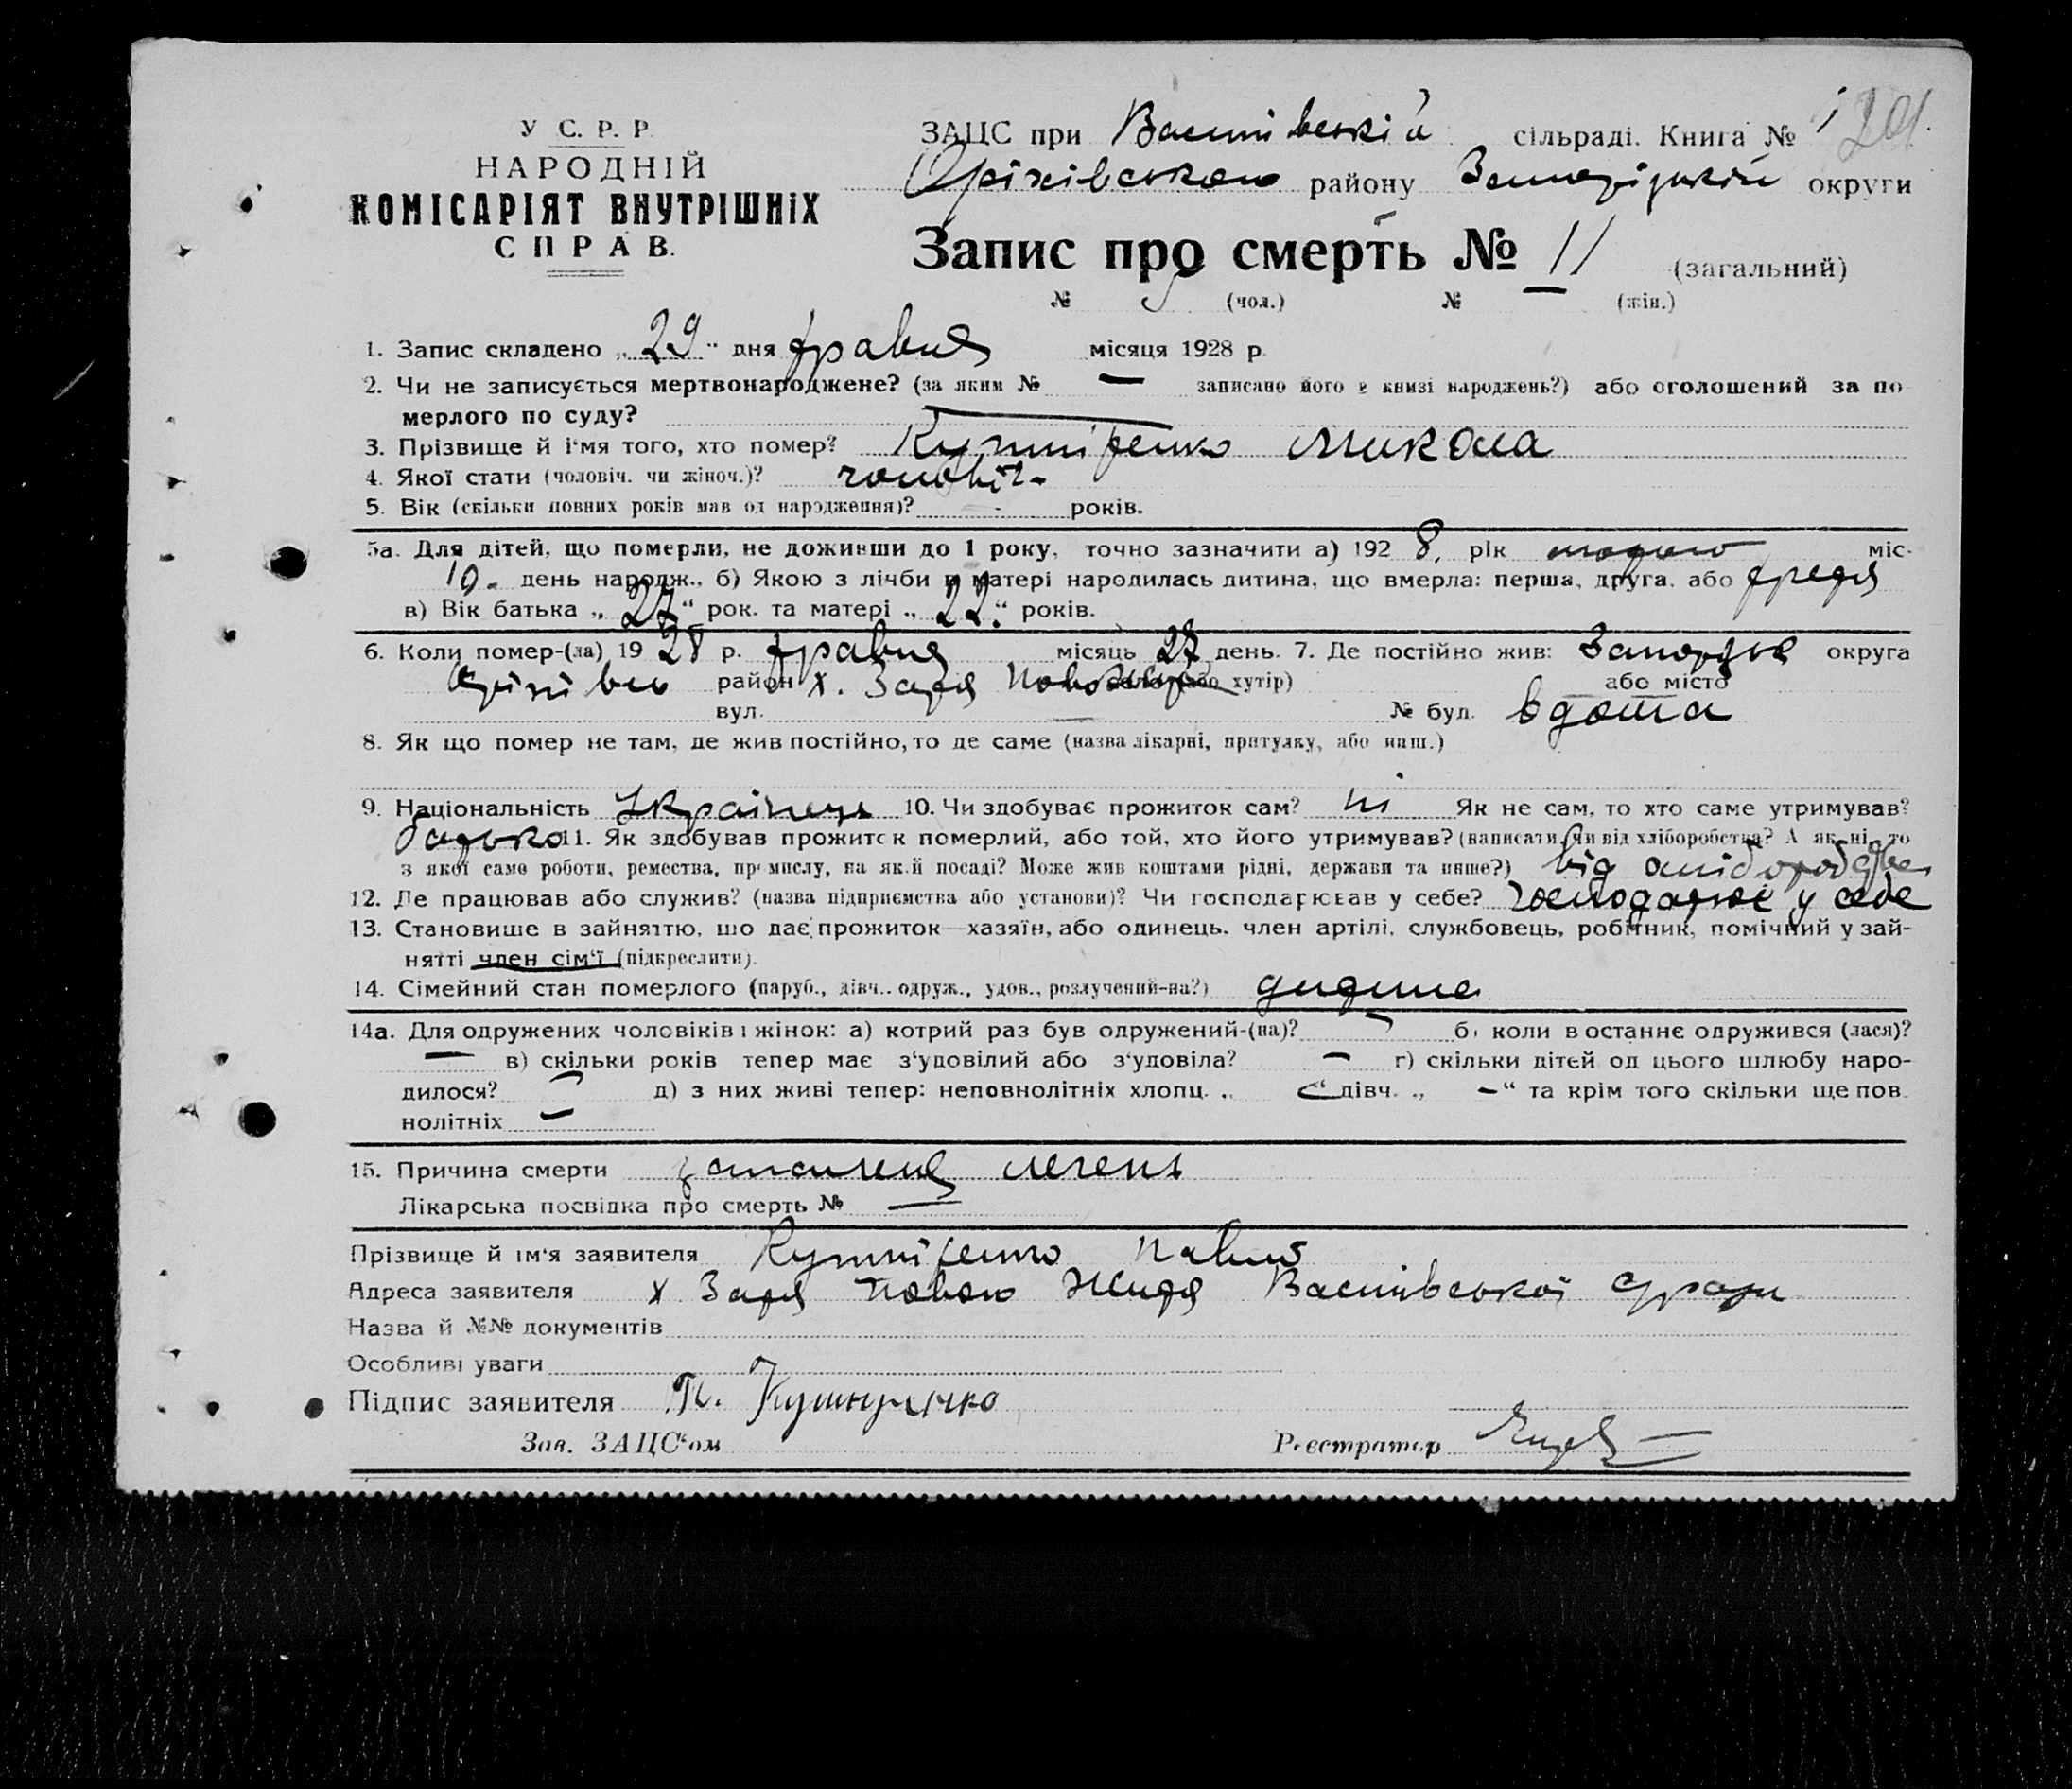 У С. Р. Р.
НАРОДНІЙ
КОМІСАРІЯТ ВНУТРІШНІХ
СПРАВ.
ЗАЦС при сільраді. Книга № 1 201.
Оріхівського району Запорізької округи
Запис про смерть № 11 (загальний)
№ 5 (чол.) № — (жін.)
1. Запис складено „29“ дня травня місяця 1928 р.
2. Чи не записується мертвонароджене? (за яким № — записано його в книзі народжень?) або оголошений за по
мерлого по суду? —
3. Прізвище й і'мя того, хто помер? Микола
4. Якої статі (чоловіч. чи жіноч.)? чоловіч.
5. Вік (скільки повних років мав од народження)? - років.
5а. Для дітей, що померли, не доживши до 1 року, точно зазначити а) 1928, рік міс-
10. день народж., б) Якою з лічби в матері народилась дитина, що вмерла: перша, друга, або третя
в) Вік батька „27“ рок. та матері „22.“ років.
6. Коли помер-(ла) 1928 р. травня місяць 27 день. 7. Де постійно жив: округа
район х. Заря село (або хутір) або місто
вул. — № буд. вдома
8. Як що помер не там, де жив постійно, то де саме (назва лікарні, притулку, або инш.)
9. Національність Українець 10. Чи здобуває прожиток сам? ні Як не сам, то хто саме утримував?
батько 11. Як здобував прожиток померлий, або той, хто його утримував? (написати, чи від хліборобства? А як ні, то
з якої саме роботи, ремества, промислу, на якій посаді? Може жив коштами рідні, держави та инше?) від хліборобства
12. Де працював або служив? (назва підприємства або установи)? Чи господарював у себе? господарює у себе
13. Становище в зайняттю, що дає прожиток—хазяїн, або одинець, член артілі, службовець, робітник, помічний у зай-
нятті член сім'ї (підкреслити).
14. Сімейний стан померлого (паруб., дівч., одруж., удов., розлучений-на?) дитина
14а. Для одружених чоловіків і жінок: а) котрий раз був одружений-(на)? — б) коли в останнє одружився (лася)?
— в) скільки років тепер має з'удовілий або з'удовіла? — г) скільки дітей од цього шлюбу наро-
дилося? — д) з них живі тепер: неповнолітніх хлопц. „—“ дівч. „—“ та крім того скільки ще пов
нолітніх —
15. Причина смерти запалення легень
Лікарська посвідка про смерть № —
Прізвище й ім'я заявителя Павло
Адреса заявителя х Заря Нового Життя
Назва й №№ документів
Особливі уваги
Підпис заявителя П.
Зав. ЗАЦС'ом Реєстратор